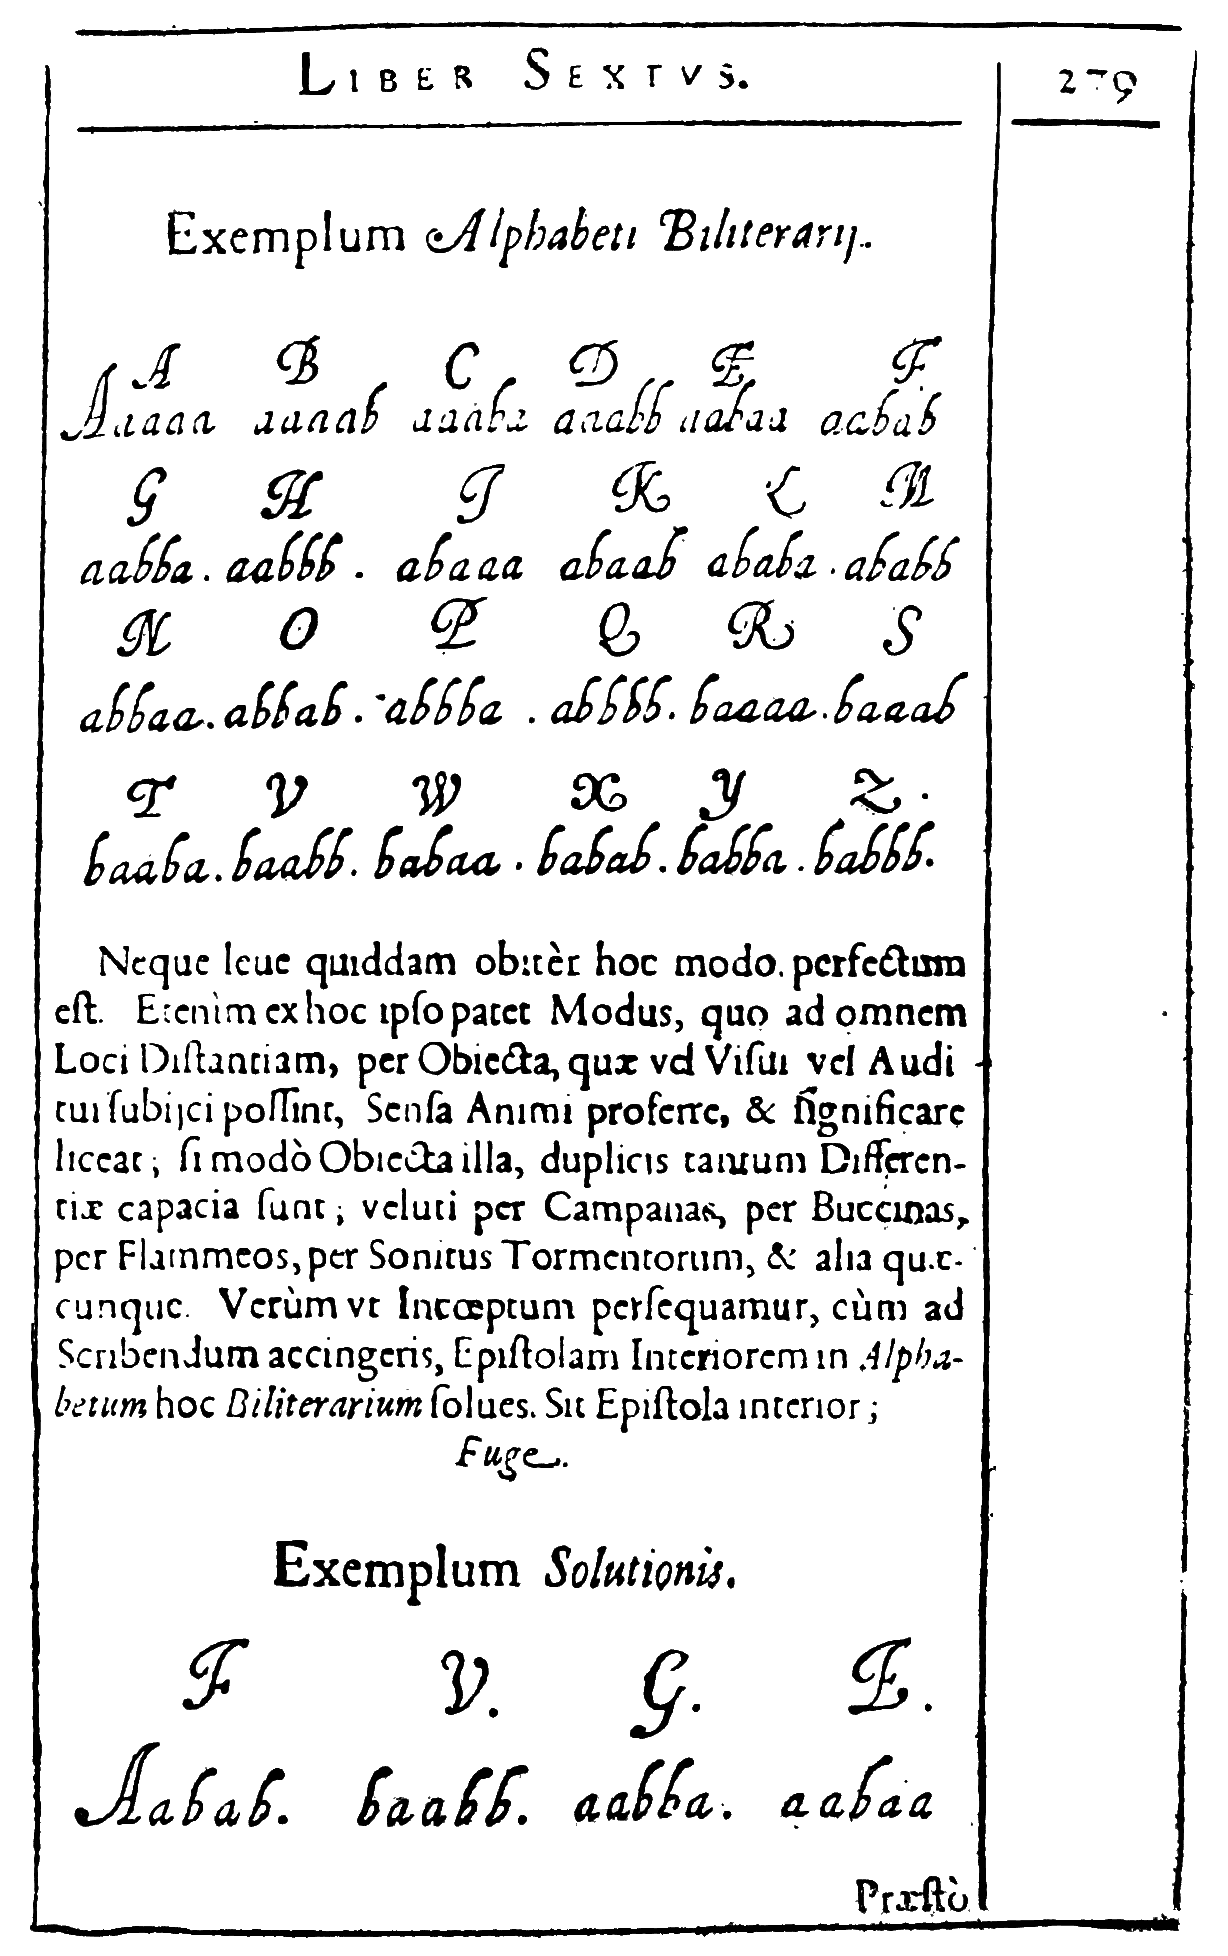 LIBER SEXTVS. 279
Exemplum Alphabeti Biliterarij.
A B C D E F
Aaaaa aaaab aaaba aaabb aabaa aabab
G H I K L M
aabba. aabbb. abaaa abaab ababa. ababb
N O P Q R S
abbaa. abbab. abbba. abbbb. baaaa. baaab
T V W X Y Z.
baaba. baabb. babaa. babab. babba. babbb.
Neque leue quiddam obitèr hoc modo. perfectum
est. Etenìm ex hoc ipſo patet Modus, quo ad omnem
Loci Diſtantiam, per Obiecta, quæ vel Viſui vel Audi
tui ſubijci poſſint, Senſa Animi proferre, & ſignificare
liceat; ſi modò Obiecta illa, duplicis tantum Differen-
tiæ capacia ſunt; veluti per Campanas, per Buccinas,
per Flammeos, per Sonitus Tormentorum, & alia quæ-
cunque. Verùm vt Incœptum perſequamur, cùm ad
Scribendum accingeris, Epiſtolam Interiorem in Alpha-
betum hoc Biliterarium ſolues. Sit Epiſtola interior;
Fuge.
Exemplum Solutionis.
F V. G. E.
Aabab. baabb. aabba. aabaa
Præſtò